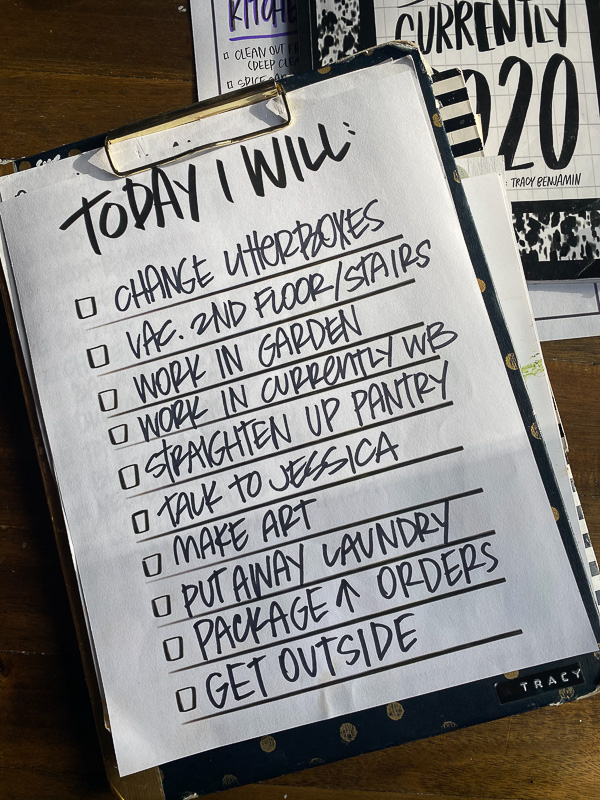 KITCHE
CLEAN OUT
(DEEP CLE
CURRENTLY
2020
: TRACY BENJAMIN
TODAY I WILL:
CHANGE LITTERBOXES
VAC. 2ND FLOOR/STAIRS
WORK IN GARDEN
WORK IN CURRENTLY WB
STRAIGHTEN UP PANTRY
TALK TO JESSICA
MAKE ART
PUT AWAY LAUNDRY
PACKAGE ↑ ORDERS
GET OUTSIDE
TRACY